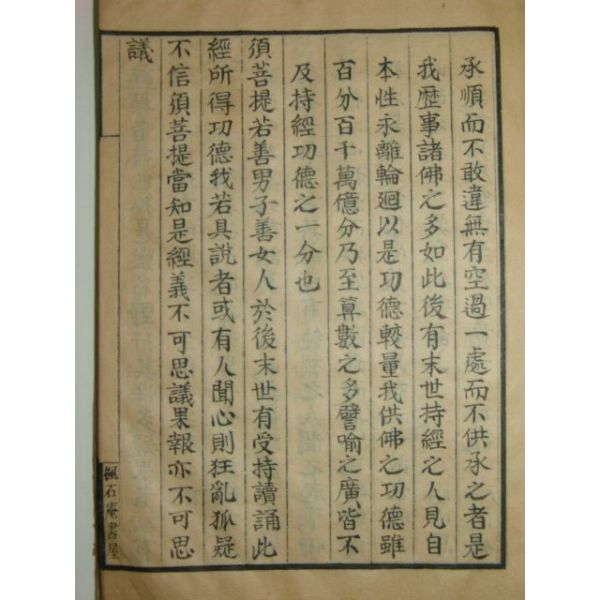 承順而不敢違無有空過一處而不供承之者是
我歷事諸佛之多如此後有末世持經之人見自
本性永離輪廻以是功德較量我供佛之功德雖
百分百千萬億分乃至算數之多譬喻之廣皆不
及持經功德之一分也
須菩提若善男子善女人於後末世有受持讀誦此
經所得功德我若具說者或有人聞心則狂亂狐疑
不信須菩提當知是經義不可思議果報亦不可思
議
楓石庵書屋